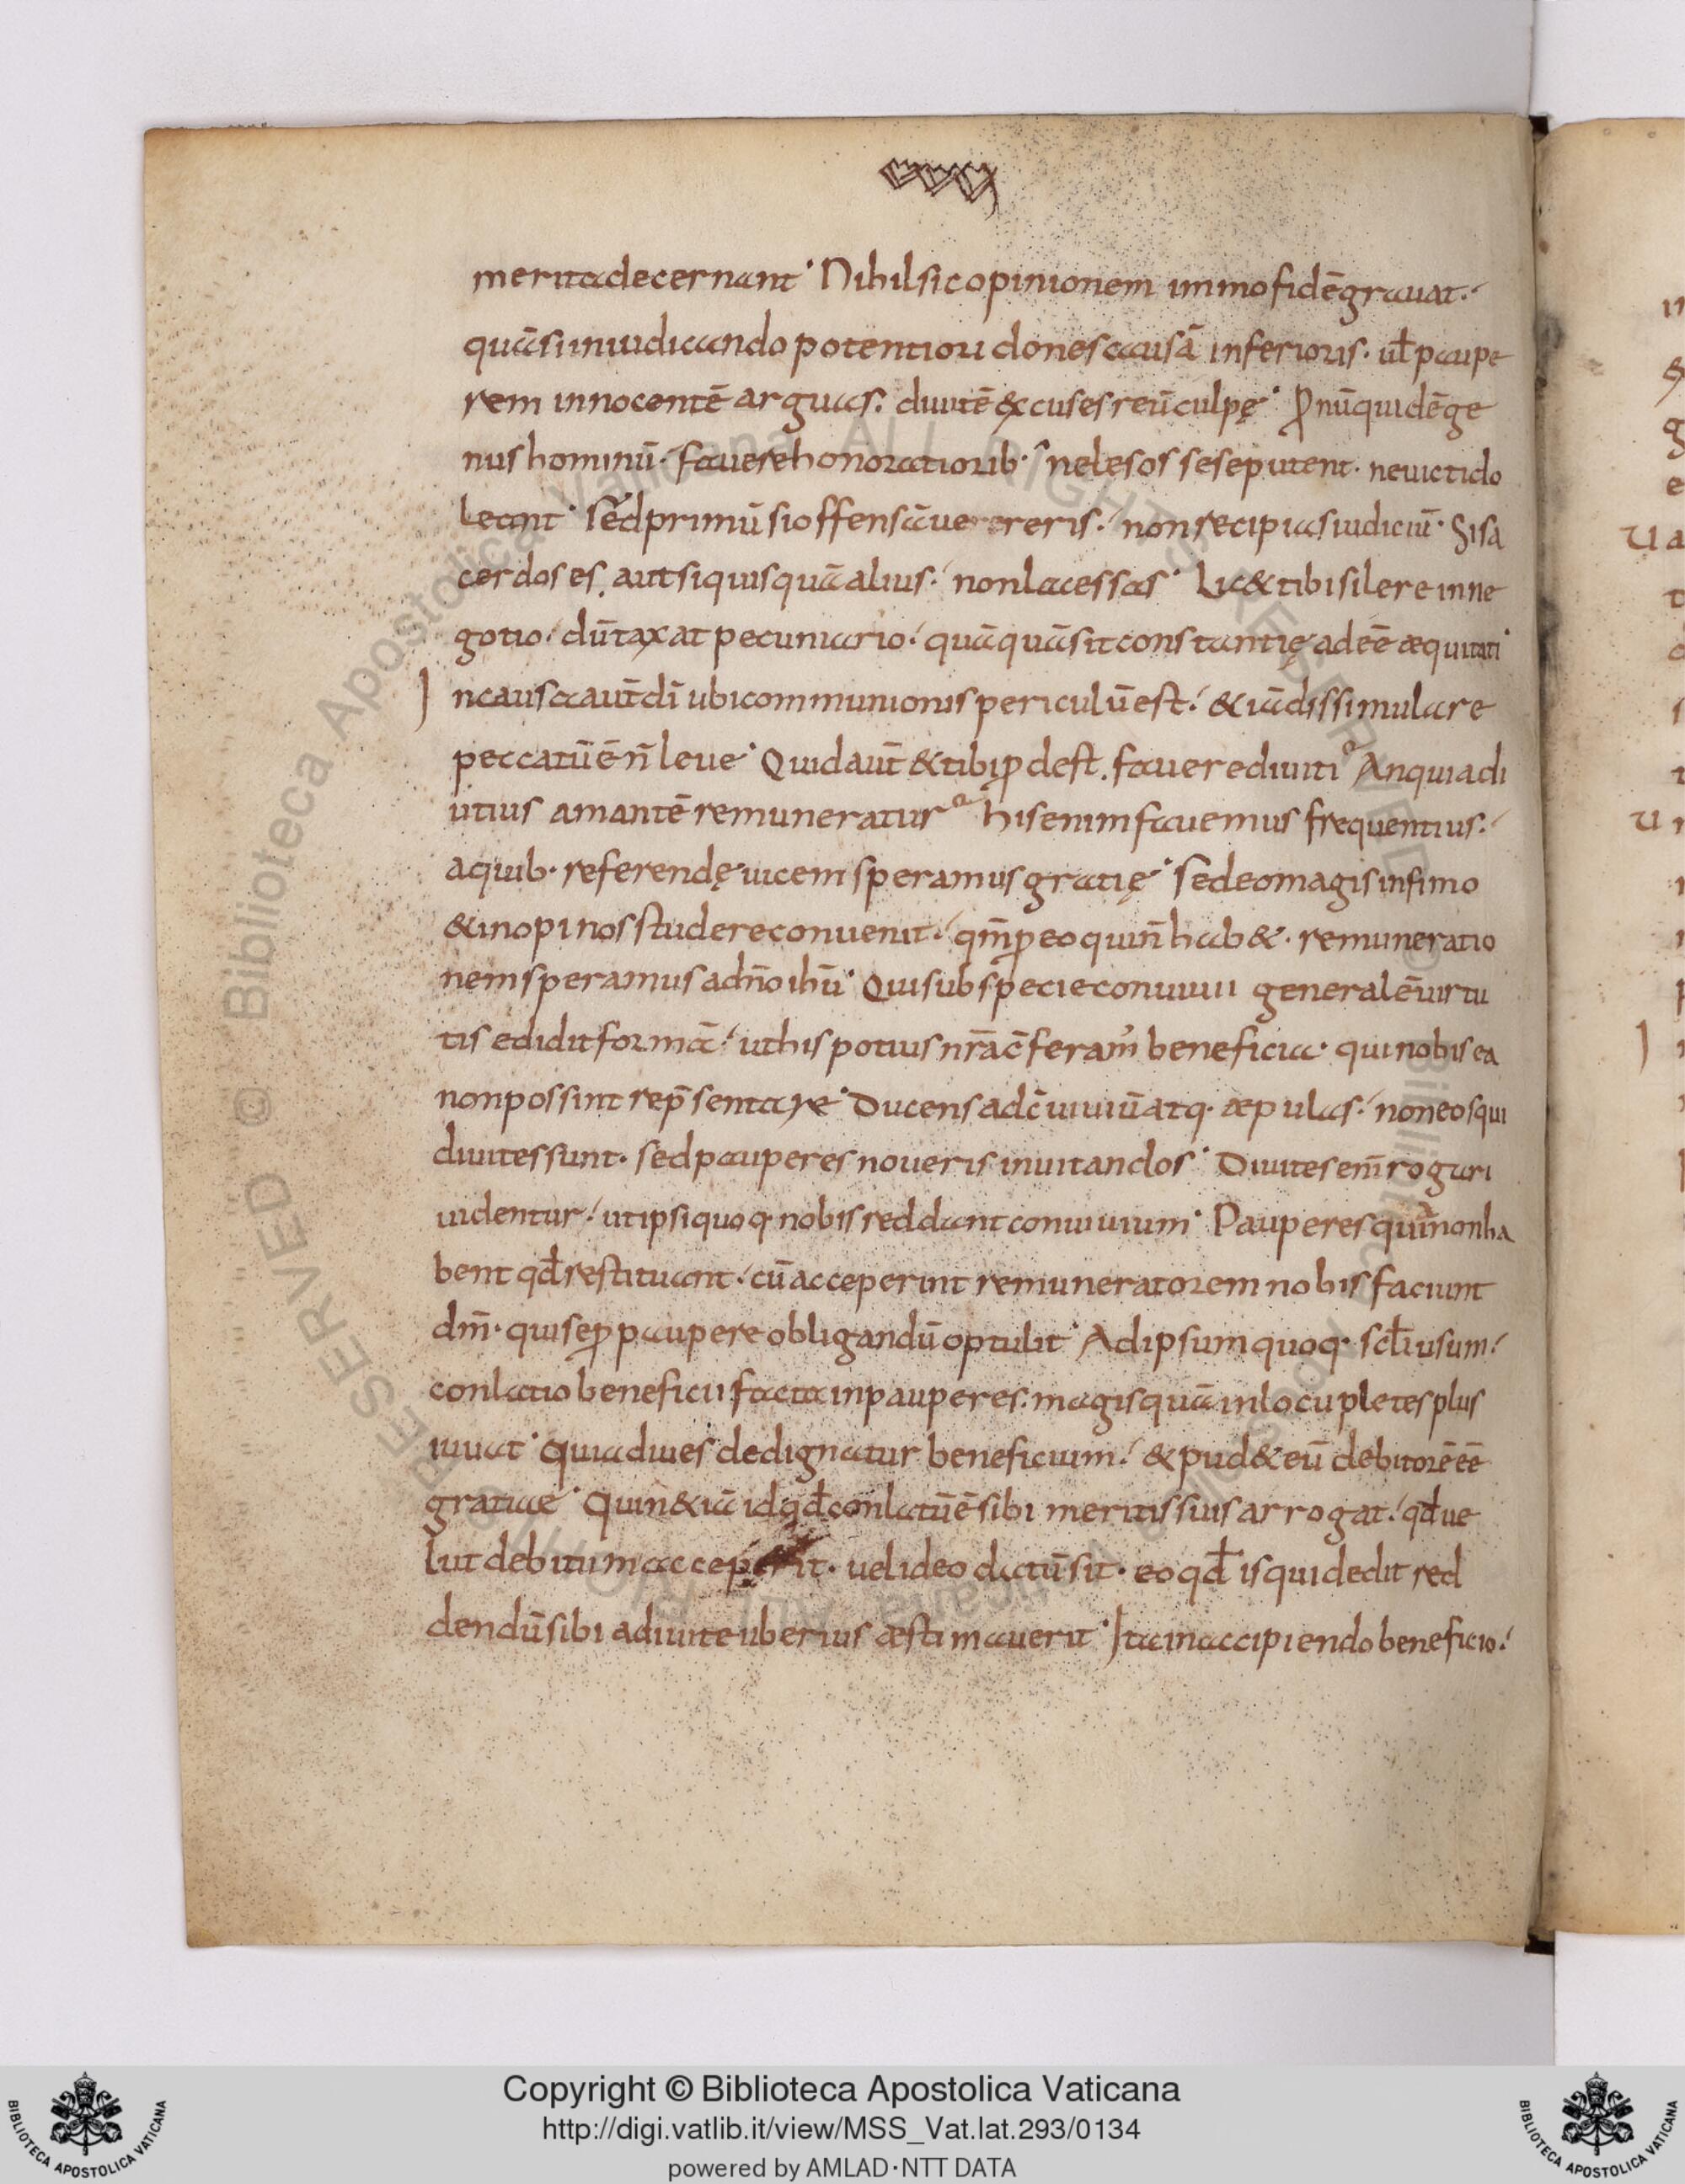 merita decernant· Nihil sic opinionem immo fidē grauat·
quā si in iudicando potentiori dones causā inferioris· ul̄ paupe
rem innocentē arguas· diuitē excuses reū culpę· Pnū quidē ge
nus hominū· fauere honoratiorib· ne lesos sese putent· ne uicti do
leant· sed primū si offensā ve rereris· non recipias iudiciū· Si sa
cerdos es, aut si quisquā alius· non lacessas· Lic& tibi silere in ne
gotio· dūtaxat pecuniario· quāquā sit constantię adeē æquitati·
In causa aut̄ dī ubi communionis periculū est· & iā dissimulare
peccatū ē n̄ leue· Quid aut̄ & tibi ꝓdest, fauere diuiti Anquia di
utius amantē remuneratur his enim fauemus frequentius·
a quib· referendę uicem speramus gratię· sed eo magis infimo
& inopi nos studere conuenit· qm̄ ꝓ eo qui n̄ hab&· remuneratio
nem speramus a dn̄o ihū· Qui sub specie conuiuii generalē uirtu
tis edidit formā· ut his potius nr̄a c̄feram' beneficia· qui nobis ea
non possint rep̄sentare· Ducens ad c̄uiuiū atq· æpulas· non eos qui
diuites sunt· sed pauperes noueris inuitandos· Diuites enī rogari
uidentur· ut ipsi quoq· nobis reddant conuiuium· Pauperes qui n̄ non ha
bent qd̄ restituant· cū acceperint remuneratorem nobis faciunt
dm̄· qui se ꝓ paupere obligandū optulit· Ad ipsum quoq· scl̄i usum·
conlatio beneficii facta in pauperes· magis quā in locupletes plus
iuuat· Quia diues dedignatur beneficium· & pud& eū debitorē eē
gratiae· Quin & iā id qd̄ conlatū ē sibi meritis suis arrogat· qd̄ ue
lut debitum acceperit· uel ideo datū sit· eo qd̄ is qui dedit red
dendū sibi a diuite uberius æstimauerit· Ita in accipiendo beneficio·
Copyright © Biblioteca Apostolica Vaticana
http://digi.vatlib.it/view/MSS_Vat.lat.293/0134
powered by AMLAD·NTT DATA